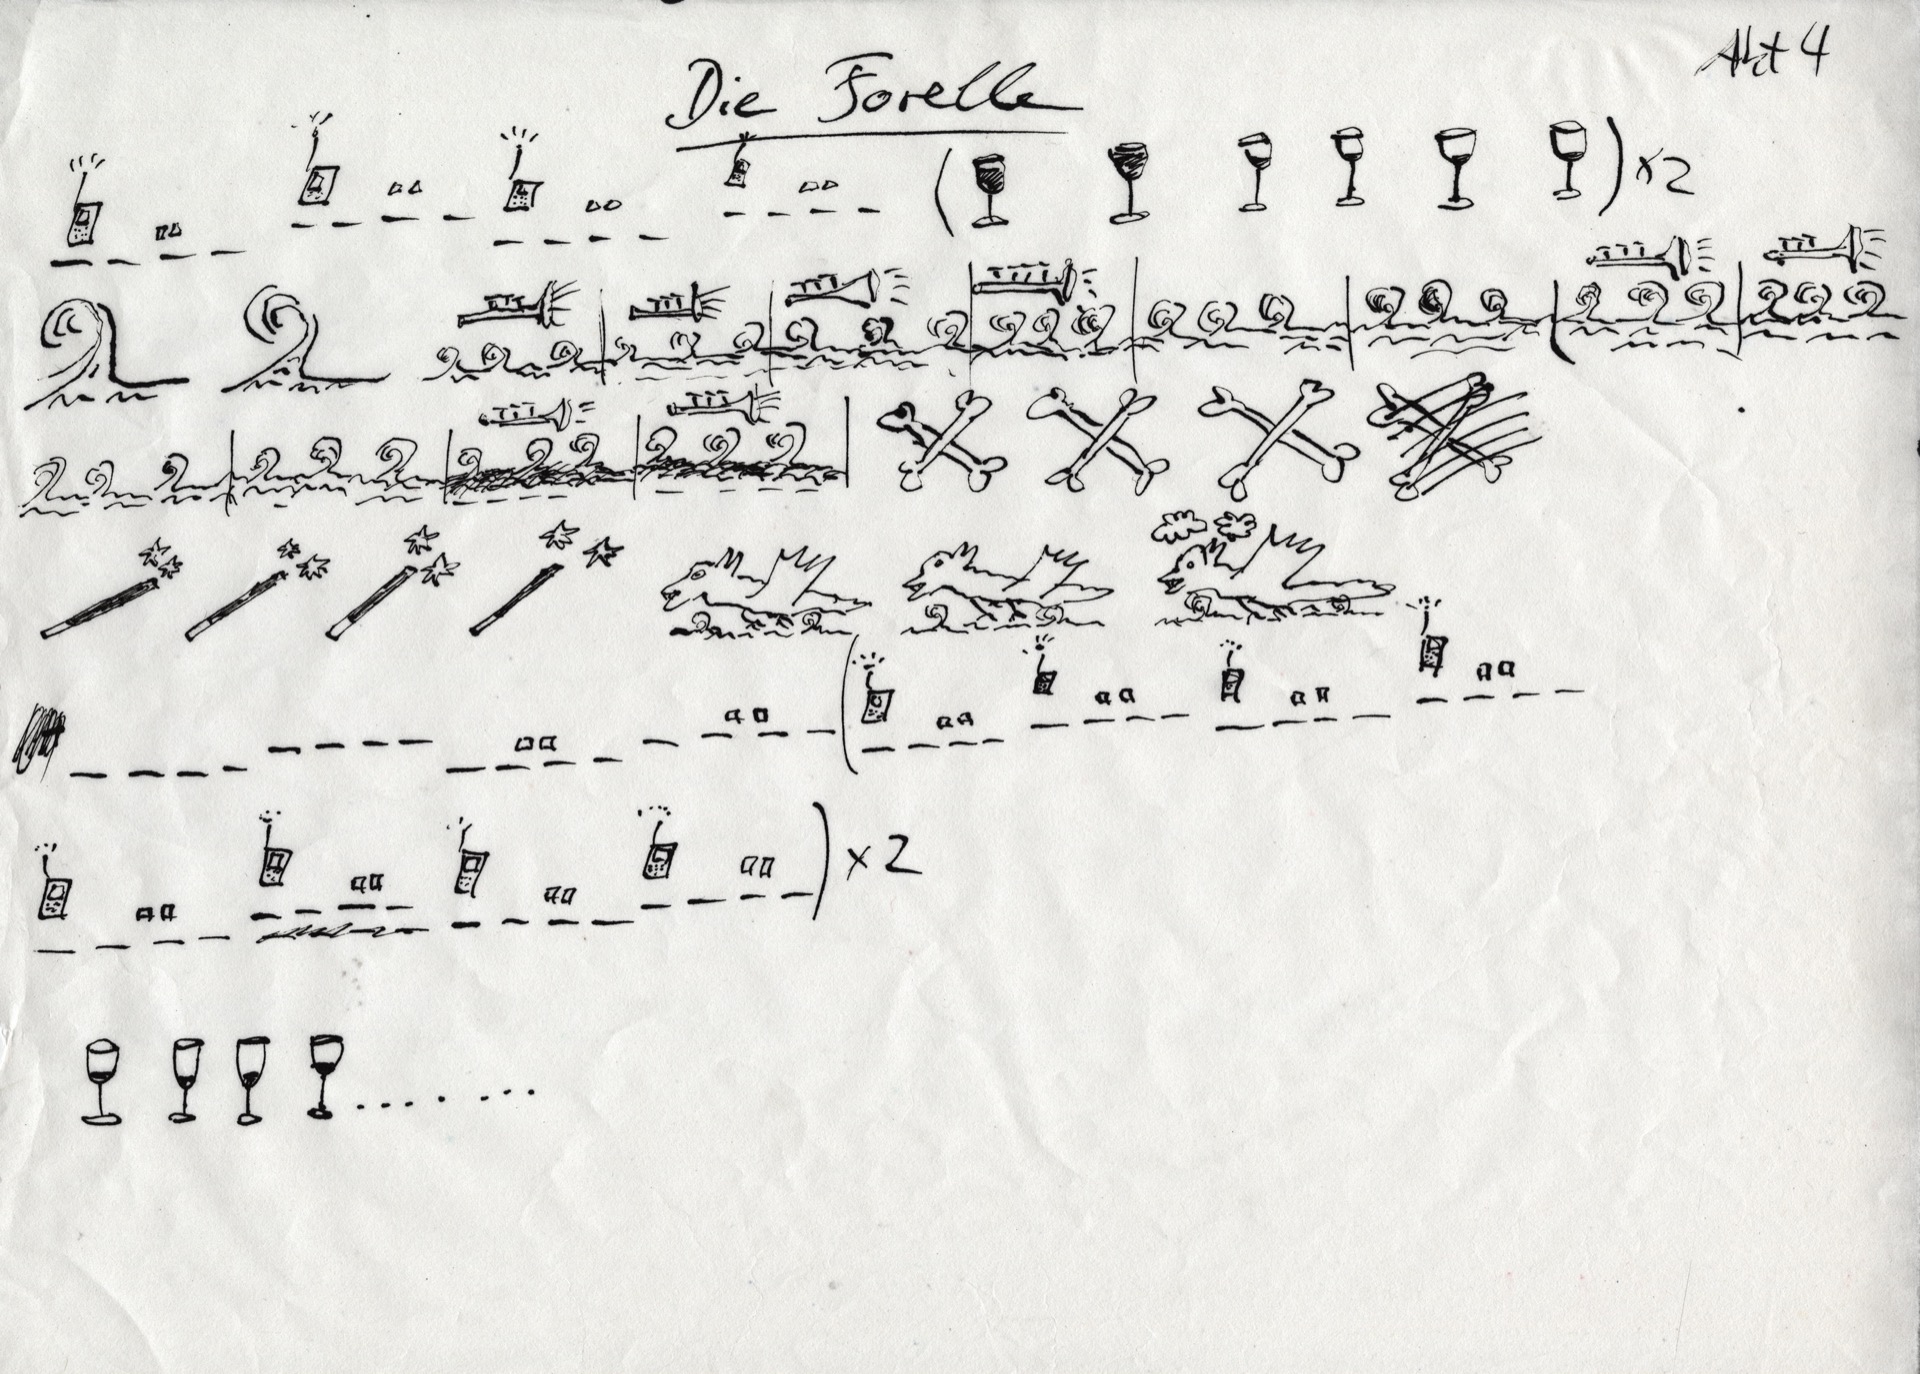 Akt 4
Die Forelle
x2
x2